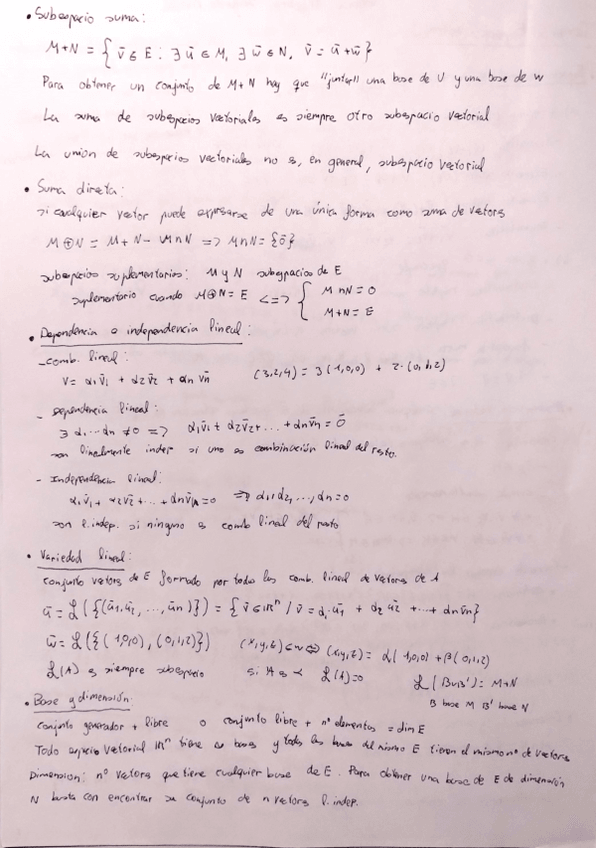 • Subespacio suma:
M+N = { v̄ ∈ E : ∃ ū ∈ M, ∃ w̄ ∈ N, v̄ = ū + w̄ }
Para obtener un conjunto de M+N hay que "juntar" una base de U y una base de W
La suma de subespacios vectoriales es siempre otro subespacio vectorial
La union de subespacios vectoriales no es, en general, subespacio vectorial
• Suma directa:
si cualquier vector puede expresarse de una única forma como suma de vectores
M⊕N = M+N - M∩N => M∩N = {ō}
subespacios suplementarios: M y N subespacios de E
suplementario cuando M⊕N = E <=> { M∩N = 0
M+N = E
• Dependencia o independencia lineal:
- comb. lineal:
V = α1 v̄1 + α2 v̄2 + αn v̄n (3,2,4) = 3(1,0,0) + 2·(0,1,2)
- Dependencia lineal:
∃ α1 ... αn ≠ 0 => α1 v̄1 + α2 v̄2 + ... + αn v̄n = ō
son linealmente indep si uno es combinación lineal del resto.
- Independencia lineal:
α1 v̄1 + α2 v̄2 + ... + αn v̄n = 0 => α1, α2, ..., αn = 0
son l. indep. si ninguno es comb lineal del resto
• Variedad lineal:
Conjunto vectores de E formado por todas las comb. lineal de vectores de A
ū = ℒ({(ū1, ū2, ..., ūn)}) = { v̄ ∈ ℝⁿ / v̄ = α1 ū1 + α2 ū2 + ... + αn v̄n }
w̄ = ℒ({(1,0,0), (0,1,2)}) (x,y,z) ∈ w <=> (x,y,z) = α(1,0,0) + β(0,1,2)
ℒ(A) es siempre subespacio si A es ∝ ℒ(A)=0 ℒ(B∪B') = M+N
B base M B' base N
• Base y dimensión:
Conjunto generador + libre o conjunto libre + nº elementos = dim E
Todo espacio vectorial ℝⁿ tiene ∞ bases y todas las bases del mismo E tienen el mismo nº de vectores
Dimension: nº vectores que tiene cualquier base de E. Para obtener una base de E de dimensión
N basta con encontrar su conjunto de n vectores l. indep.